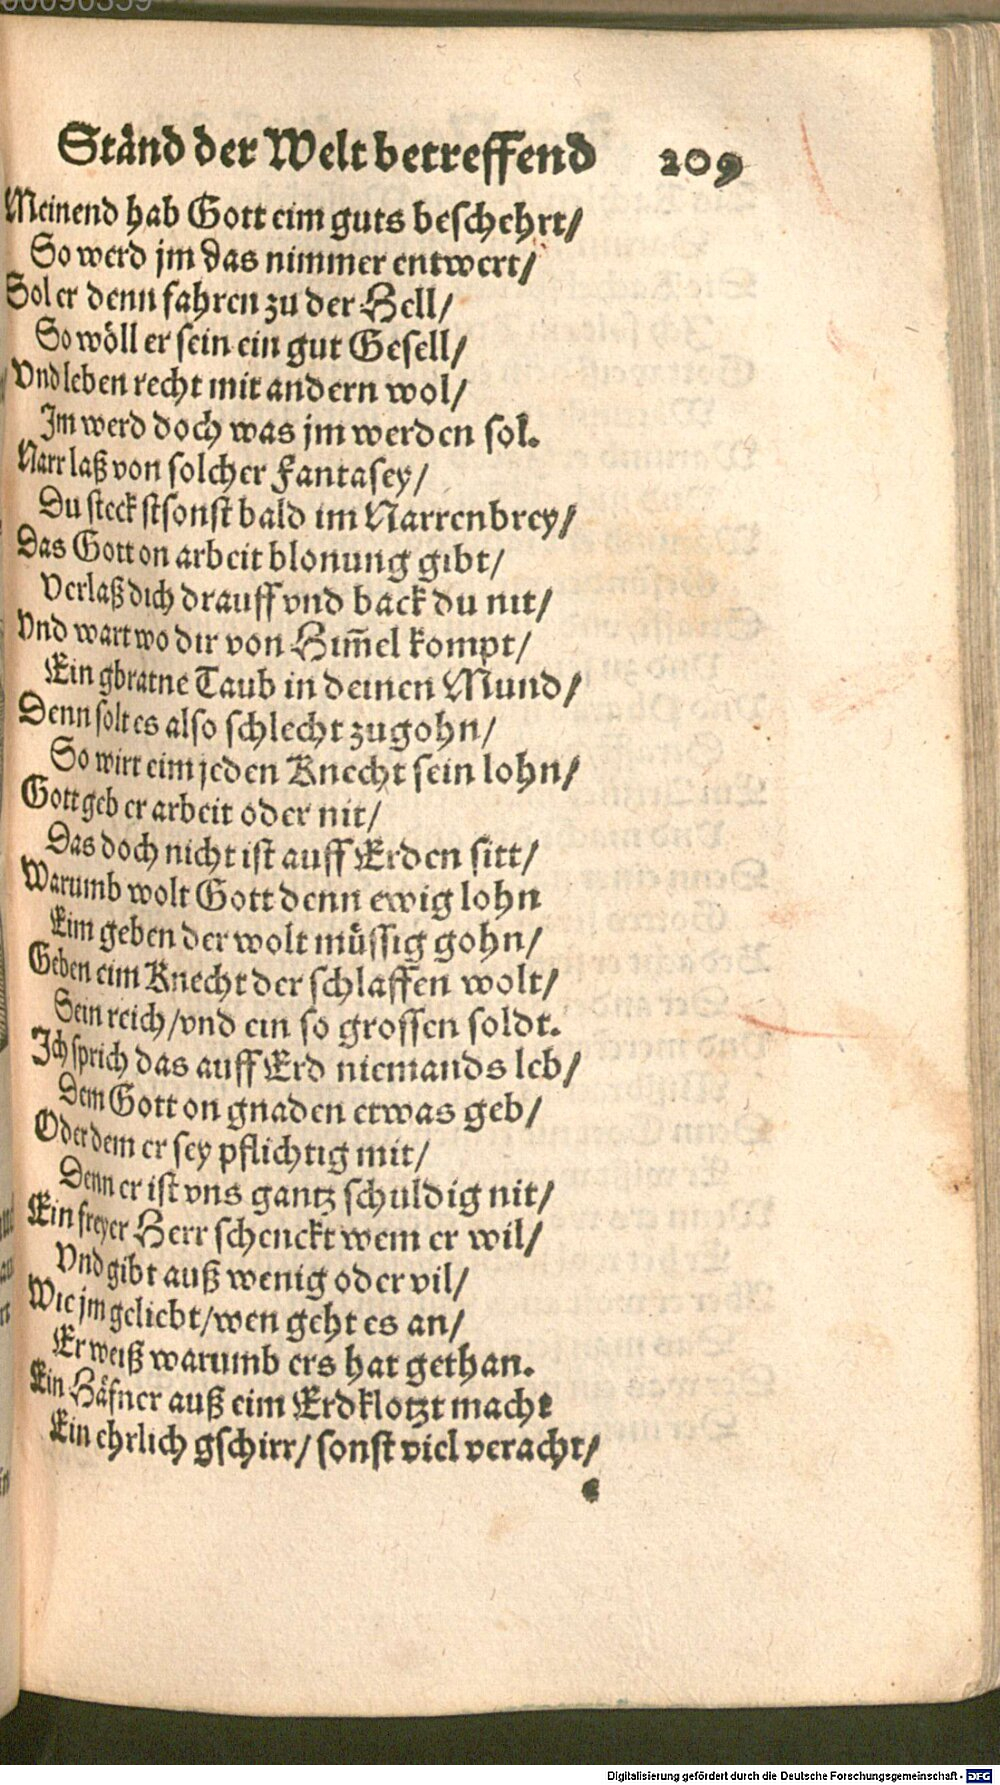 Ständ der Welt betreffend 209
Meinend hab Gott eim guts beschehrt/
So werd jm das nimmer entwert/
Sol er denn fahren zu der Hell/
So wöll er sein ein gut Gesell/
Vnd leben recht mit andern wol/
Im werd doch was jm werden sol.
Narr laß von solcher Fantasey/
Du steckstsonst bald im Narrenbrey/
Das Gott on arbeit blonung gibt/
Verlaß dich drauff vnd back du nit/
Vnd wart wo dir von Him̄el kompt/
Ein gbratne Taub in deinen Mund/
Denn solt es also schlecht zugohn/
So wirt eim jeden Knecht sein lohn/
Gott geb er arbeit oder nit/
Das doch nicht ist auff Erden sitt/
Warumb wolt Gott denn ewig lohn
Eim geben der wolt müssig gohn/
Geben eim Knecht der schlaffen wolt/
Sein reich/vnd ein so grossen soldt.
Ich sprich das auff Erd niemands leb/
Dem Gott on gnaden etwas geb/
Oder dem er sey pflichtig mit/
Denn er ist vns gantz schuldig nit/
Ein freyer Herr schenckt wem er wil/
Vnd gibt auß wenig oder vil/
Wie jm geliebt/wen geht es an/
Er weiß warumb ers hat gethan.
Ein Häfner auß eim Erdklotzt macht
Ein ehrlich gschirr/sonst viel veracht/
Digitalisierung gefördert durch die Deutsche Forschungsgemeinschaft - DFG